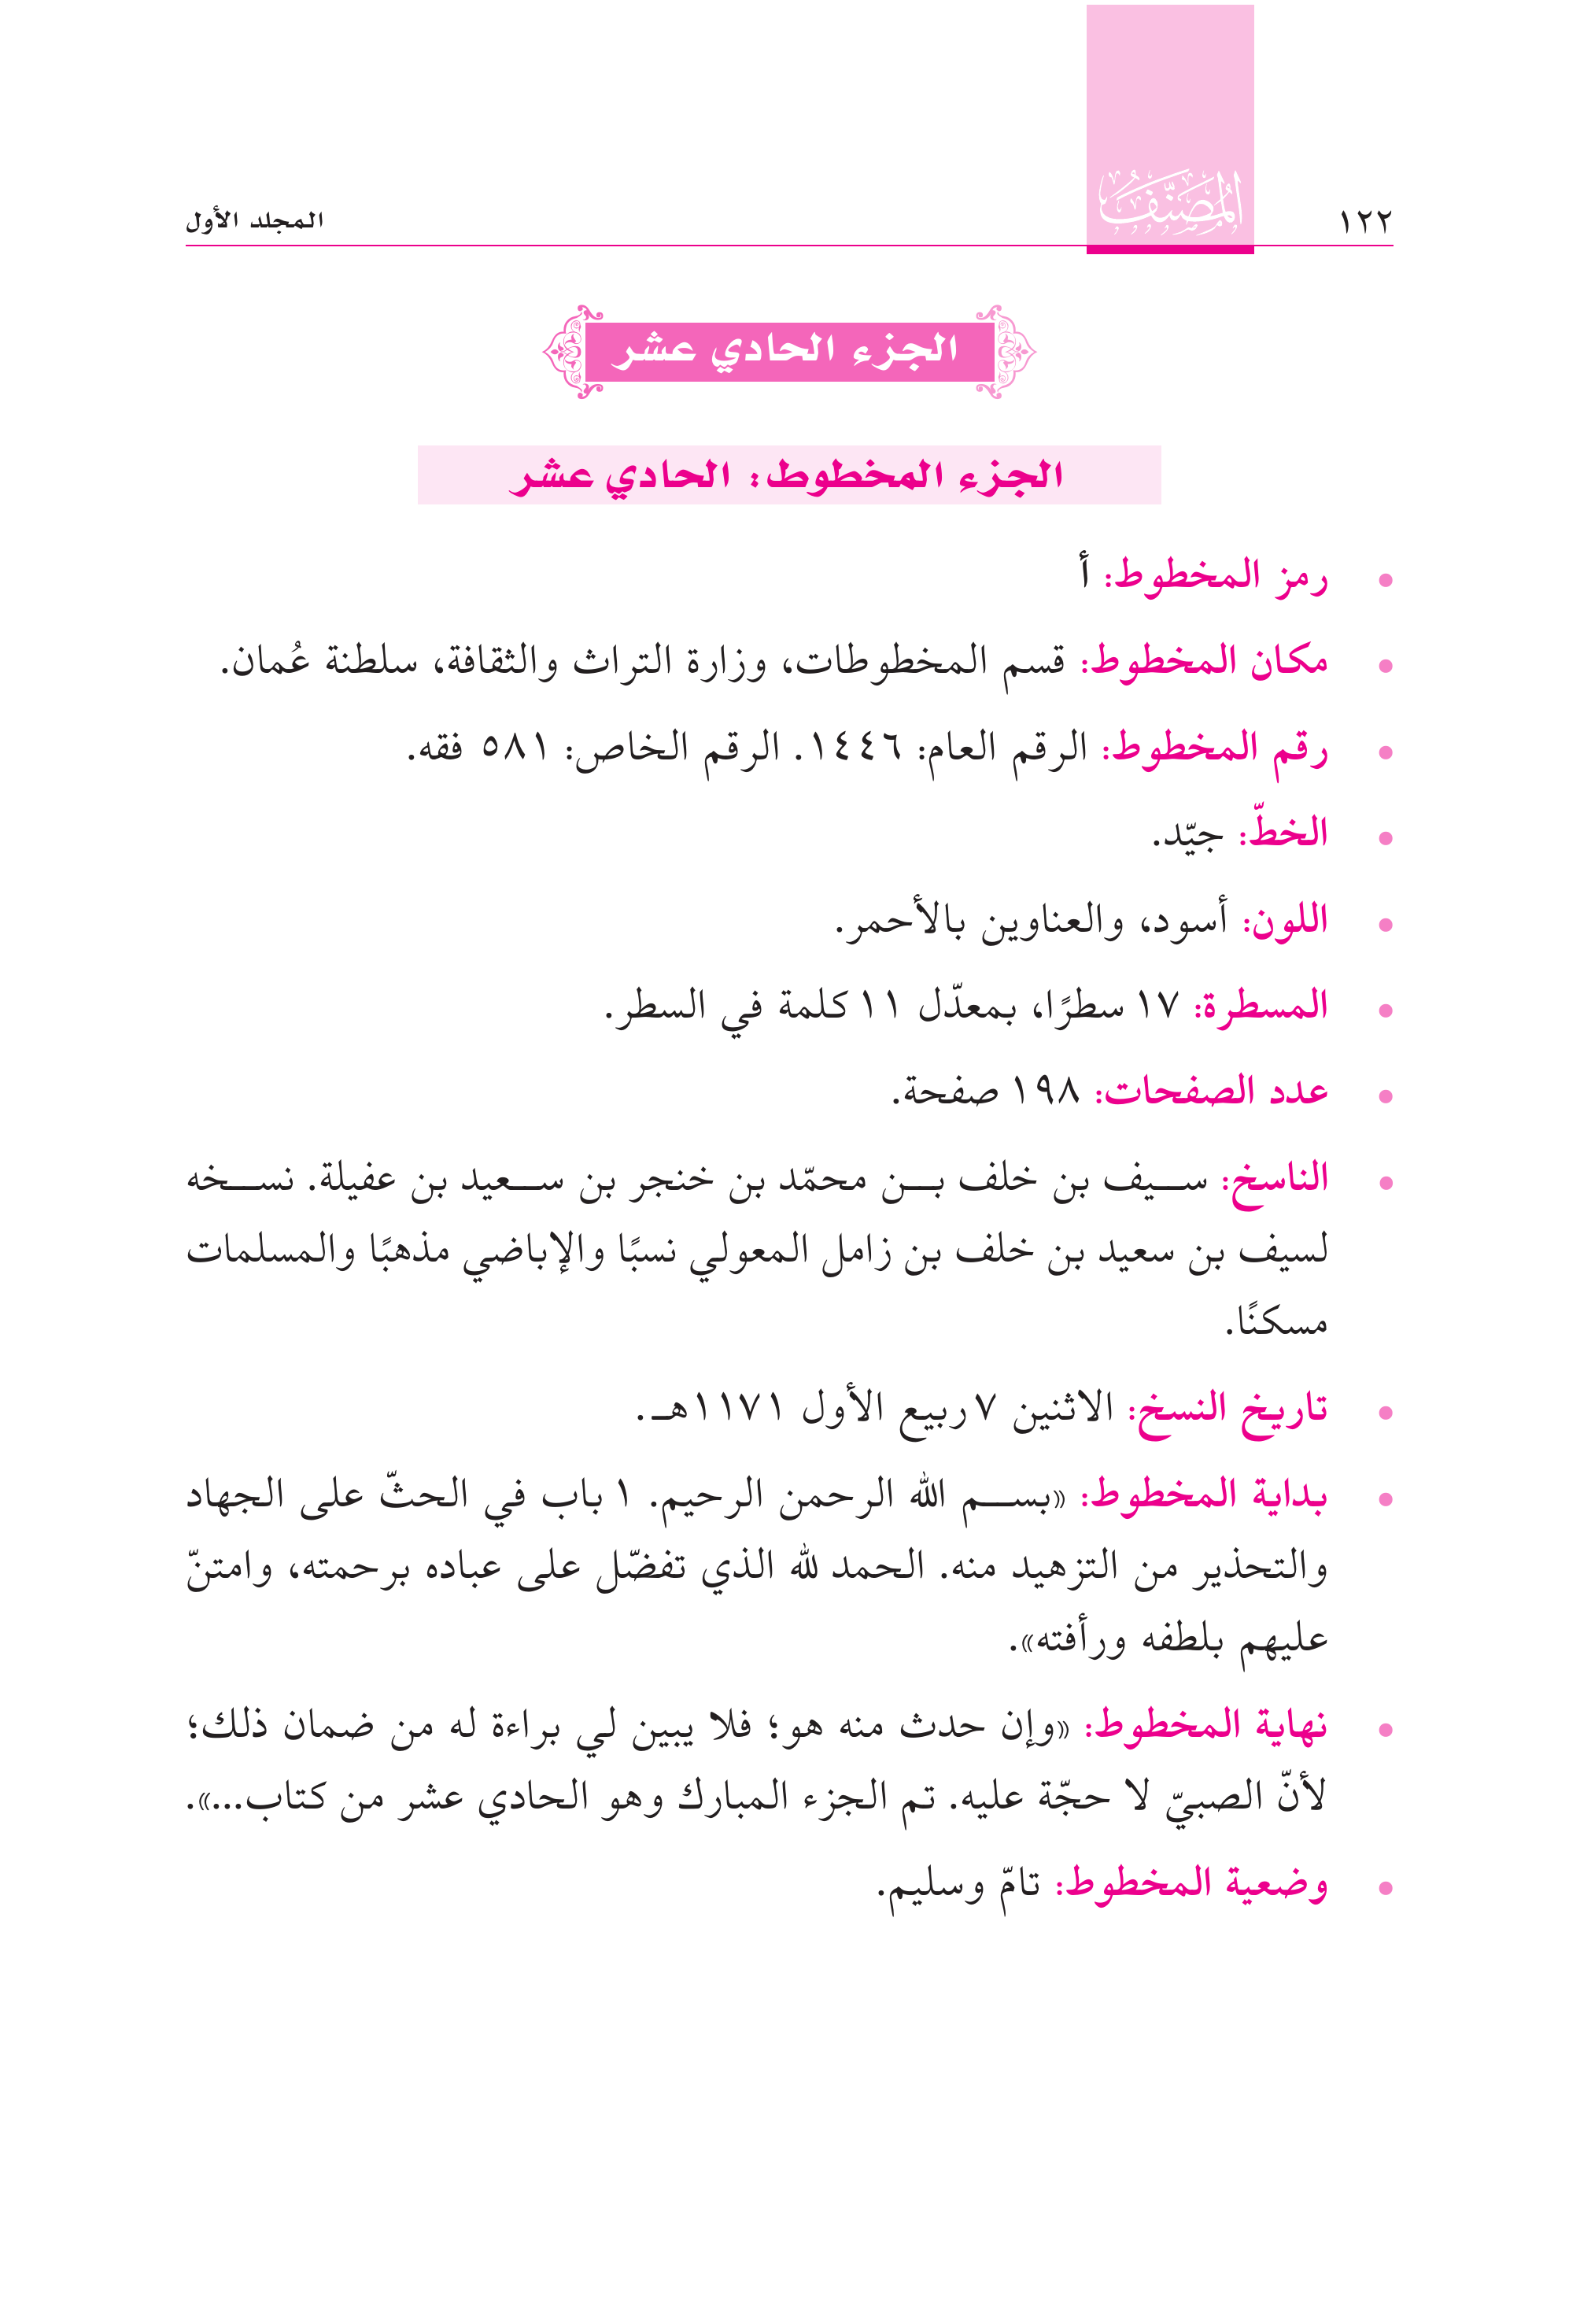 ١٢٢
المصنف
المجلد الأول
الجزء الحادي عشر
الجزء المخطوط: الحادي عشر
• رمز المخطوط: أ
• مكان المخطوط: قسم المخطوطات، وزارة التراث والثقافة، سلطنة عُمان.
• رقم المخطوط: الرقم العام: ١٤٤٦. الرقم الخاص: ٥٨١ فقه.
• الخطّ: جيّد.
• اللون: أسود، والعناوين بالأحمر.
• المسطرة: ١٧ سطرًا، بمعدّل ١١ كلمة في السطر.
• عدد الصفحات: ١٩٨ صفحة.
• الناسخ: سـيف بن خلف بـن محمّد بن خنجر بن سـعيد بن عفيلة. نسـخه
لسيف بن سعيد بن خلف بن زامل المعولي نسبًا والإباضي مذهبًا والمسلمات
مسكنًا.
• تاريخ النسخ: الاثنين ٧ ربيع الأول ١١٧١هـ.
• بداية المخطوط: «بسـم الله الرحمن الرحيم. ١ باب في الحثّ على الجهاد
والتحذير من التزهيد منه. الحمد لله الذي تفضّل على عباده برحمته، وامتنّ
عليهم بلطفه ورأفته».
• نهاية المخطوط: «وإن حدث منه هو؛ فلا يبين لي براءة له من ضمان ذلك؛
لأنّ الصبيّ لا حجّة عليه. تم الجزء المبارك وهو الحادي عشر من كتاب...».
• وضعية المخطوط: تامّ وسليم.